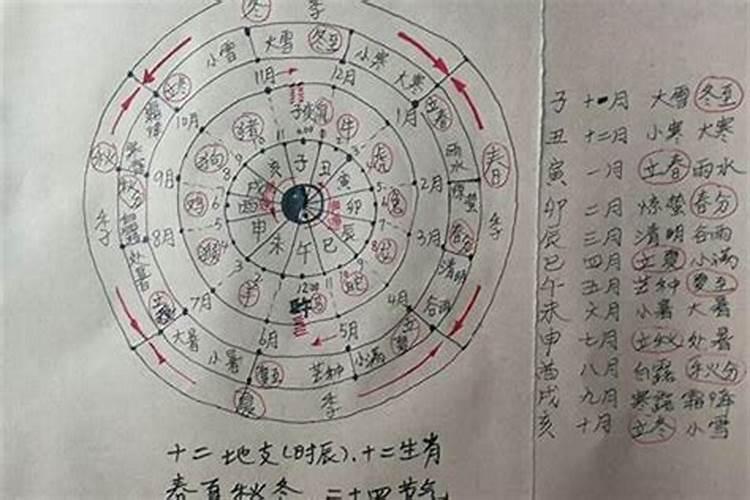 冬 季
小雪 大雪 冬至 小寒 大寒
立冬 11月 12月 1月 立春
10月 子 鼠 牛 雨水
猪 虎
秋 狗 亥 子 丑 寅 春
9月 戌 2月 惊蛰
秋分 鸡 酉 卯 兔
季 8月 申 辰 3月 春分 季
处暑 猴 未 午 巳 清明
7月 羊 12:00 蛇 4月 谷雨
大暑 6月 5月 立夏
小暑 夏至 芒种 小满
夏 季
子 十一月 大雪 冬至
丑 十二月 小寒 大寒
寅 一月 立春 雨水
卯 二月 惊蛰 春分
辰 三月 清明 谷雨
巳 四月 立夏 小满
午 五月 芒种 夏至
未 六月 小暑 大暑
申 七月 立秋 处暑
酉 八月 白露 秋分
戌 九月 寒露 霜降
亥 十月 立冬 小雪
十二地支(时辰)、十二生肖
春夏秋冬 二十四节气